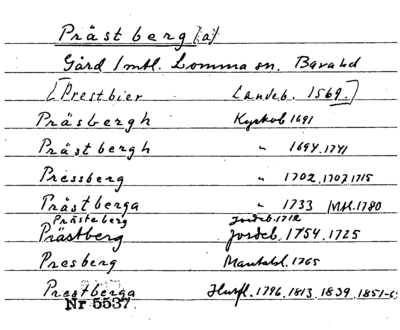 Prästberg(a)
Gård i mtl. Lomma sn. Bara hd
[Prestbier Landeb. 1569.]
Präsbergh Kyrkob 1691
Prästbergh " 1694.1741
Pressberg " 1702.1707.1715
Prästberga " 1733 Mtl.1780
Prästeberg Jordeb.1712
Prästberg Jordeb.1754.1725
Presberg Mantalsl.1765
Prestberga Husfl.1796.1813.1839.1851-6
Nr 5537